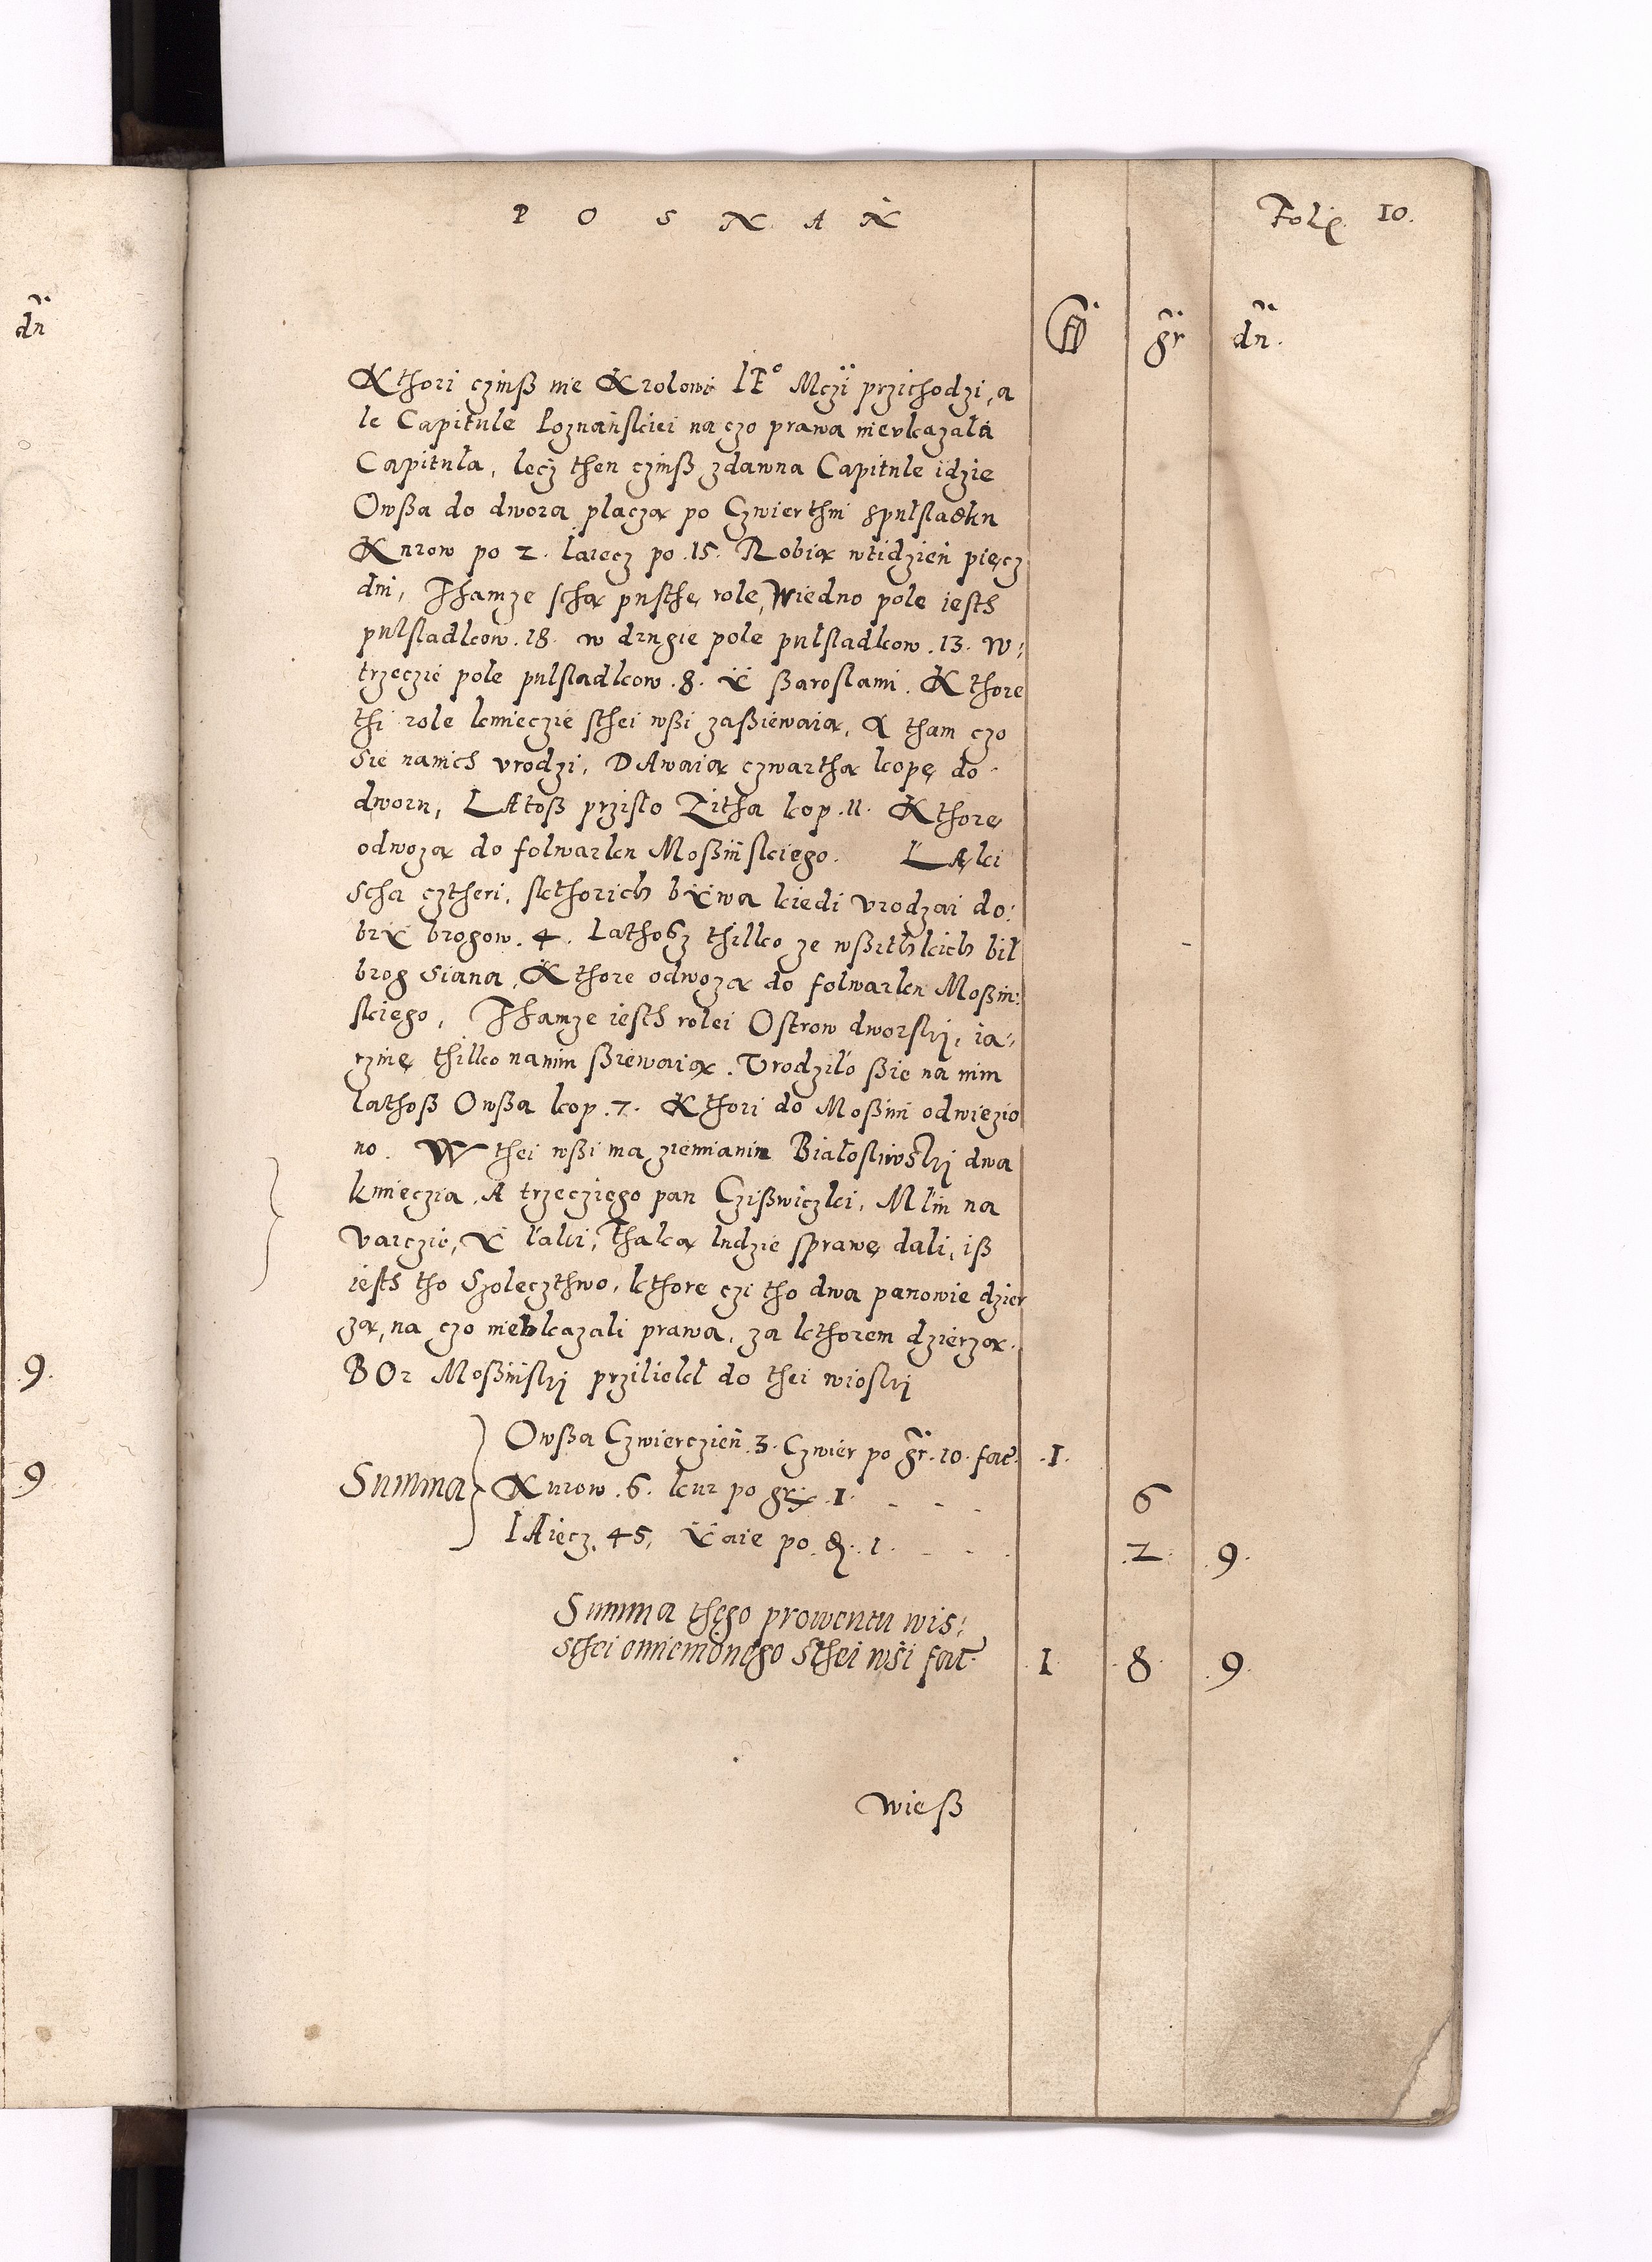 P O S N A Ń
Folio 10.
fl gr dn.
dn
Kthori czinß nie Krolowi IE° Mczi przichodzi, a
le Capitule Poznańskiei na czo prawa nievkazała
Capituła, lecz then czinß zdawna Capitule idzie
Owßa do dwora płacza po Czwierthni spułsładku
Kurow po 2. Iaiecz po .15. Robia wtidzień pięcz
dni, Thamze scha pusthe role, Wiedno pole iesth
pulsladkow .18. w drugie pole pulsladkow .13. W:
trzeczie pole pulsladkow .8. Y ßaroslami. Kthore
thi role kmieczie sthei wßi zaßiewaia, A tham czo
sie nanich vrodzi, DAwaia czwartha kopę do
dworu, LAtoß przislo Zitha kop .11. Kthorę
odwoza do folwarku Moßińskiego. LĄki
scha cztheri, skthorich bywa kiedi vrodzai do:
bry brogow .4. Lathosz thilko ze wßithkich bił
brog siana, Kthore odwoza do folwarku Moßin:
skiego, Thamze iesth rolei Ostrow dworski, ia:
rzinę thilko nanim ßiewaia. Vrodziło ßie na nim
lathoß Owßa kop .7. Kthori do Moßini odwiezio
no. W thei wßi ma ziemianin Białosliwski dwa
kmieczia, A trzecziego pan Czißwiczki, Młin na
Varczie, Y łaki, Thaka ludzie sprawę dali, iß
iesth tho Szoleczthwo, kthore czi tho dwa panowie dzier
za, na czo nieukazali prawa, za kthorem dzierza.
BOr Moßiński prziliekł do thei wioski
Summa
Owßa Czwierczień .3. Czwier po gr. 10. fac̃. .1.
Kurow .6. kur po gr. .1. 6
IAiecz. 45, Yaie po .d. 1. .2. .9.
Summa thęgo prowentu wis:
sthei omiemonego sthei wśi fac̃. 1 .8. .9.
Wieß
.9.
.9